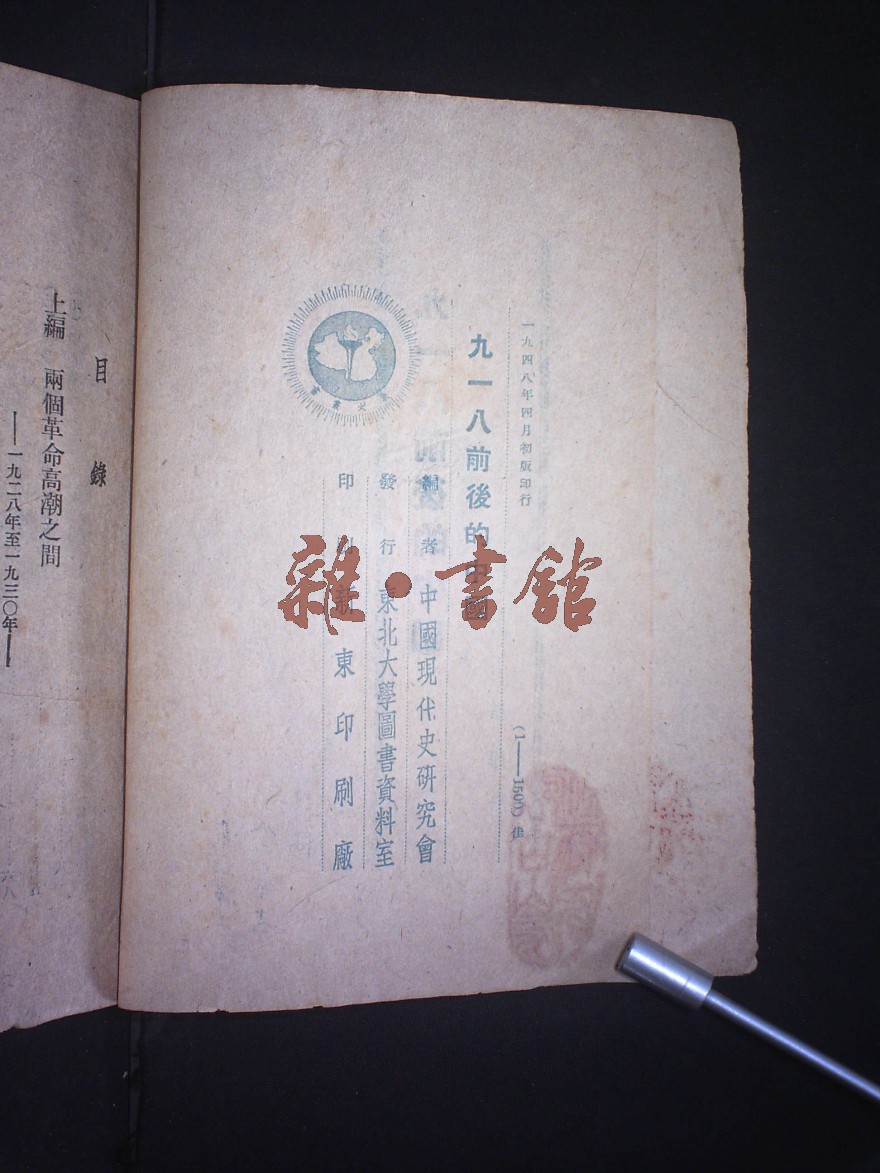 一九四八年四月初版印行
(1——1500) 佳
九一八前後的中國
編者 中國現代史研究會
發行 東北大學圖書資料室
印刷 新東印刷廠
雜·書館
目錄
上編 兩個革命高潮之間
——一九二八年至一九三〇年——